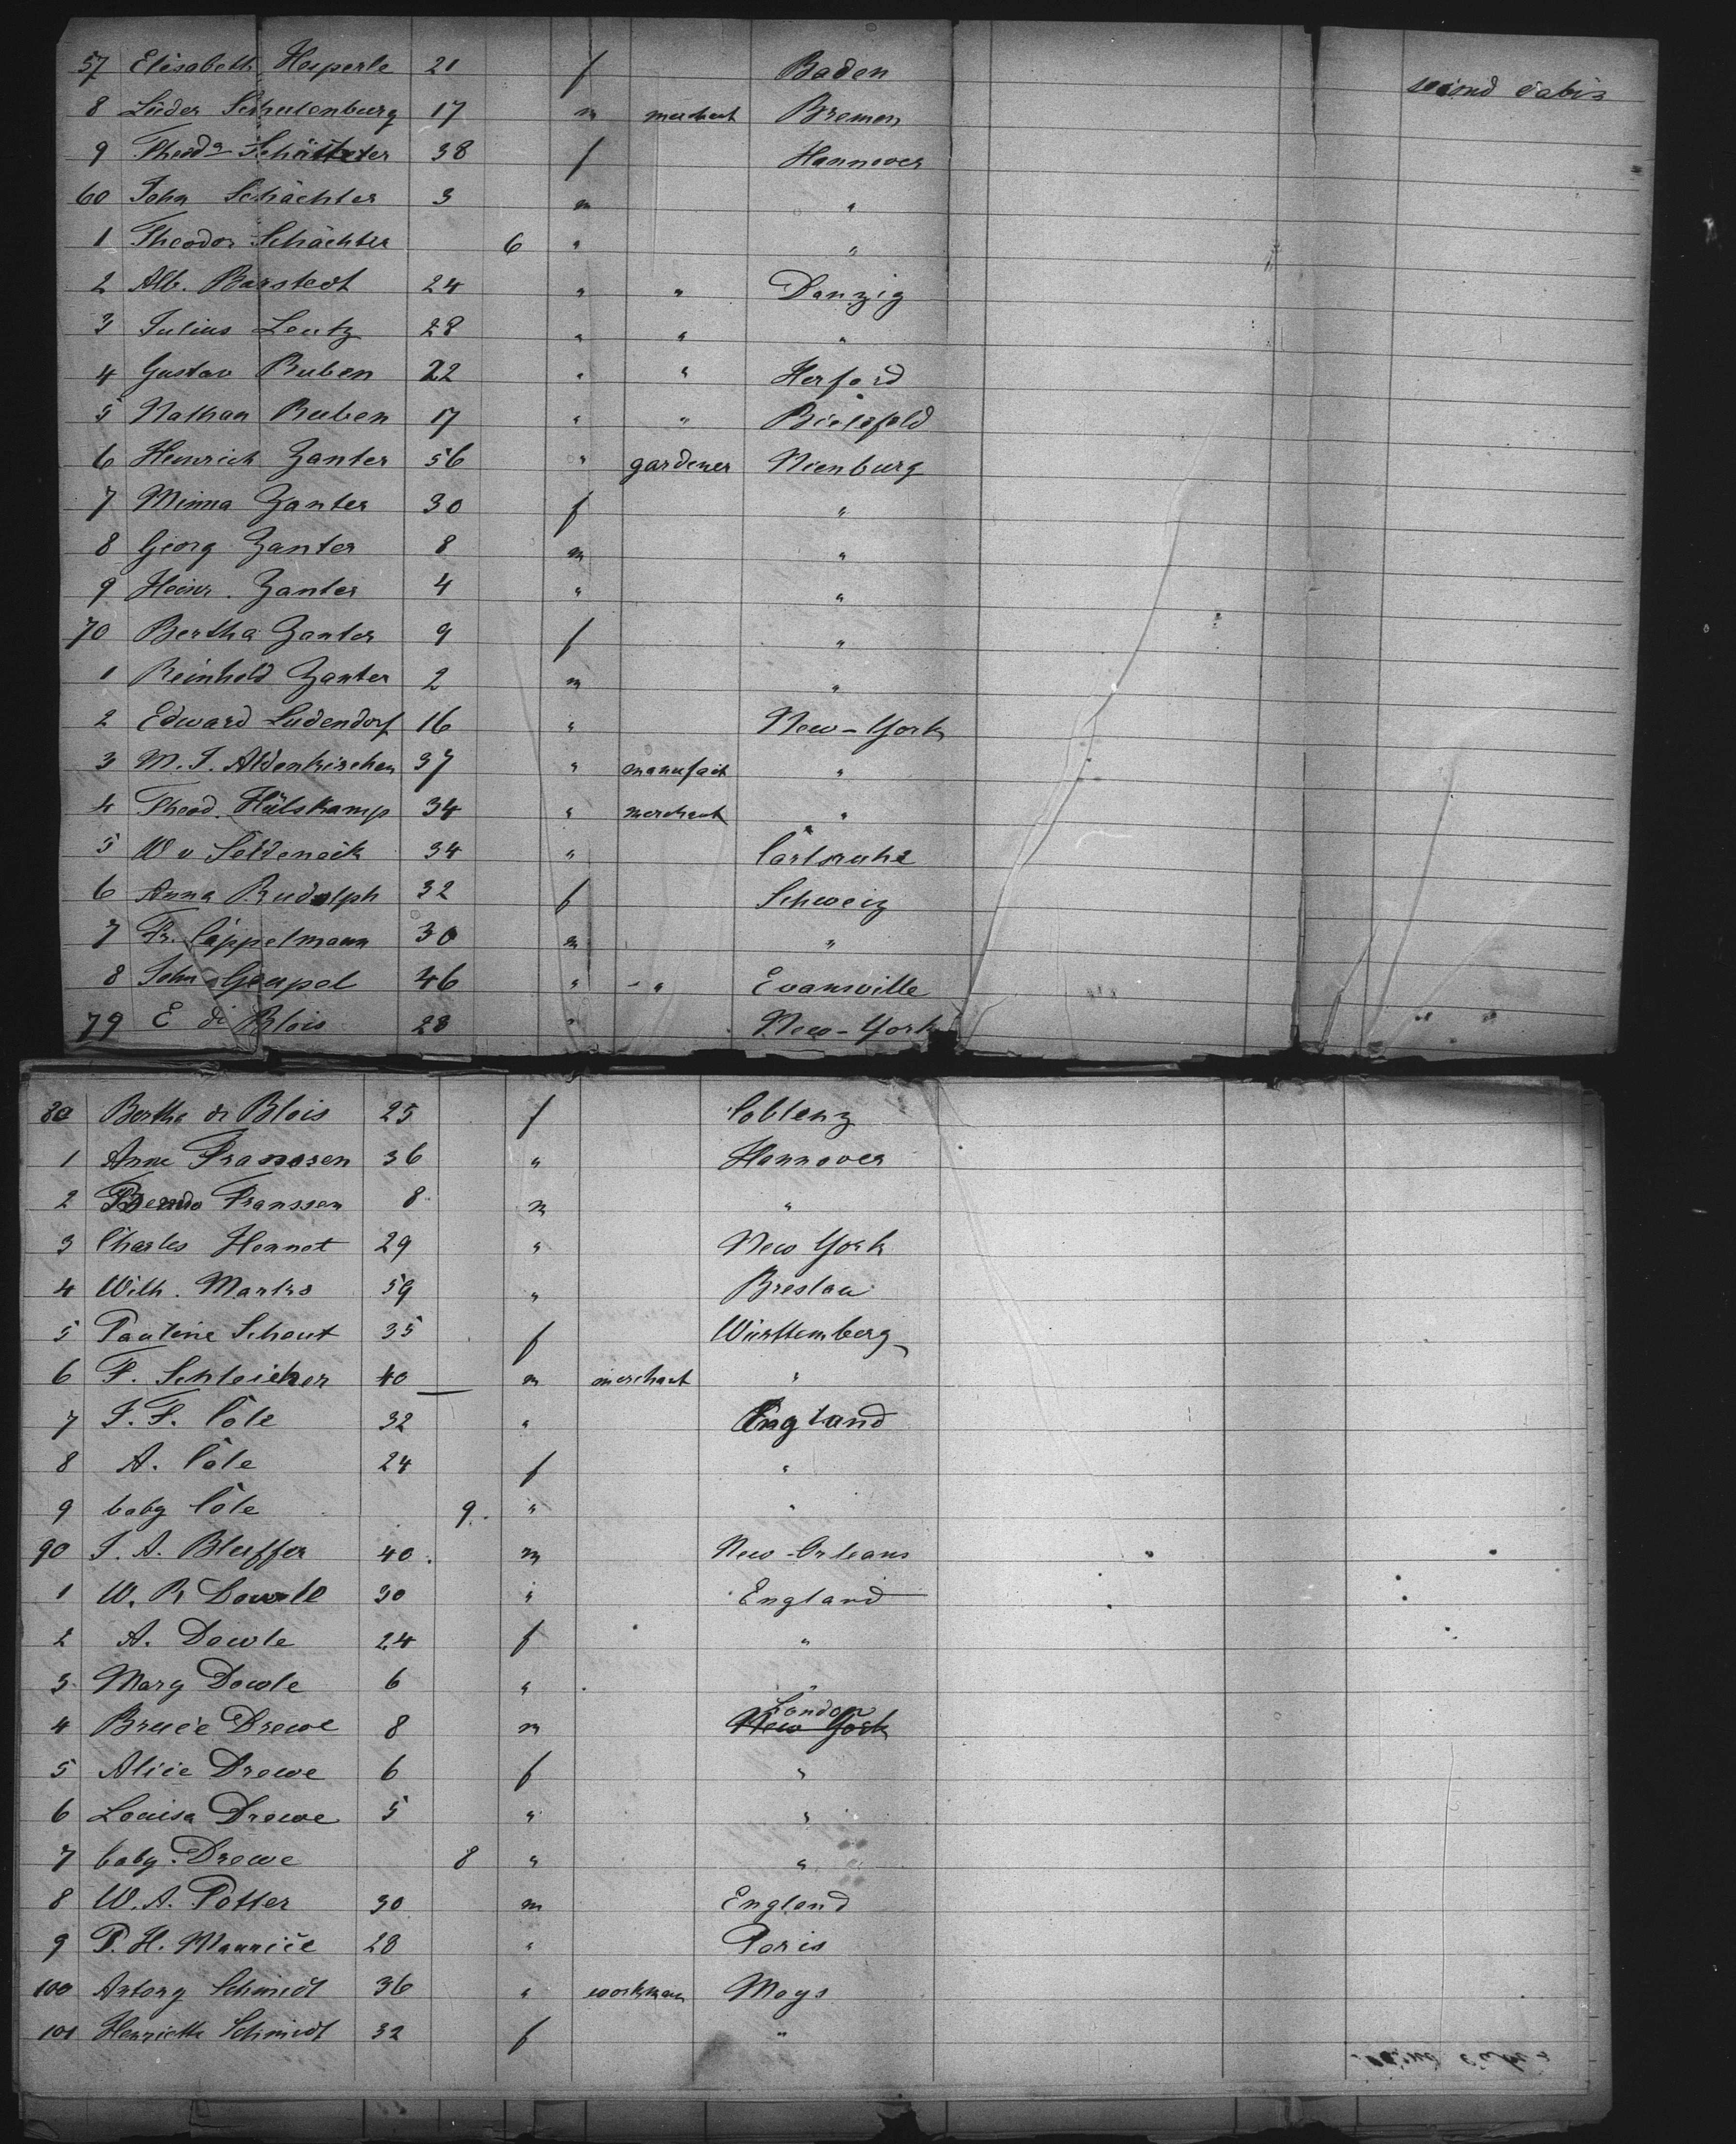 57 Elisabeth Hesperle 21 f Baden second cabin
8 Lüder Schulenburg 17 m merchant Bremen
9 Theoda Schächter 38 f Hannover
60 John Schächter 3 m "
1 Theodor Schächter 6 " "
2 Alb. Barstedt 24 " " Danzig
3 Julius Leutz 28 " " "
4 Gustav Ruben 22 " " Herford
5 Nathan Ruben 17 " " Bielefeld
6 Heinrich Zanter 56 " gardener Nienburg
7 Minna Zanter 30 f "
8 Georg Zanter 8 m "
9 Heinr. Zanter 4 " "
70 Bertha Zanter 9 f "
1 Reinhold Zanter 2 m "
2 Edward Ludendorf 16 " New-York
3 M. J. Aldenkirchen 37 " manufact "
4 Theod. Hülskamp 34 " merchant "
5 W v Seldeneck 34 " Carlsruhe
6 Anna Rudolph 32 f Schweiz
7 Fr. Cappelmann 30 m "
8 John Geupel 46 " " Evansville
79 E di Blois 28 " New-York
80 Bertha di Blois 25 f Coblenz
1 Anne Franssen 36 " Hannover
2 Franssen 8 m "
3 Charles Hennet 29 " New York
4 Wilh. Marks 59 " Breslau
5 Pauline Schout 35 f Württemberg
6 F. Schleicher 40 m merchant "
7 J. F. Cole 32 " England
8 A. Cole 24 f "
9 baby Cole 9 " "
90 J. A. Bluffer 40 m New-Orleans
1 W. R Dowle 30 " England
2 A. Dowle 24 f "
3 Mary Dowle 6 " "
London
4 Bruce Drewe 8 m New York
5 Alice Drewe 6 f "
6 Louisa Drewe 5 " "
7 baby Drewe 8 " "
8 W. A. Potter 30 m England
9 P. H. Maurice 28 " Paris
100 Antony Schmidt 36 " workman Moys
101 Henriette Schmidt 32 f "